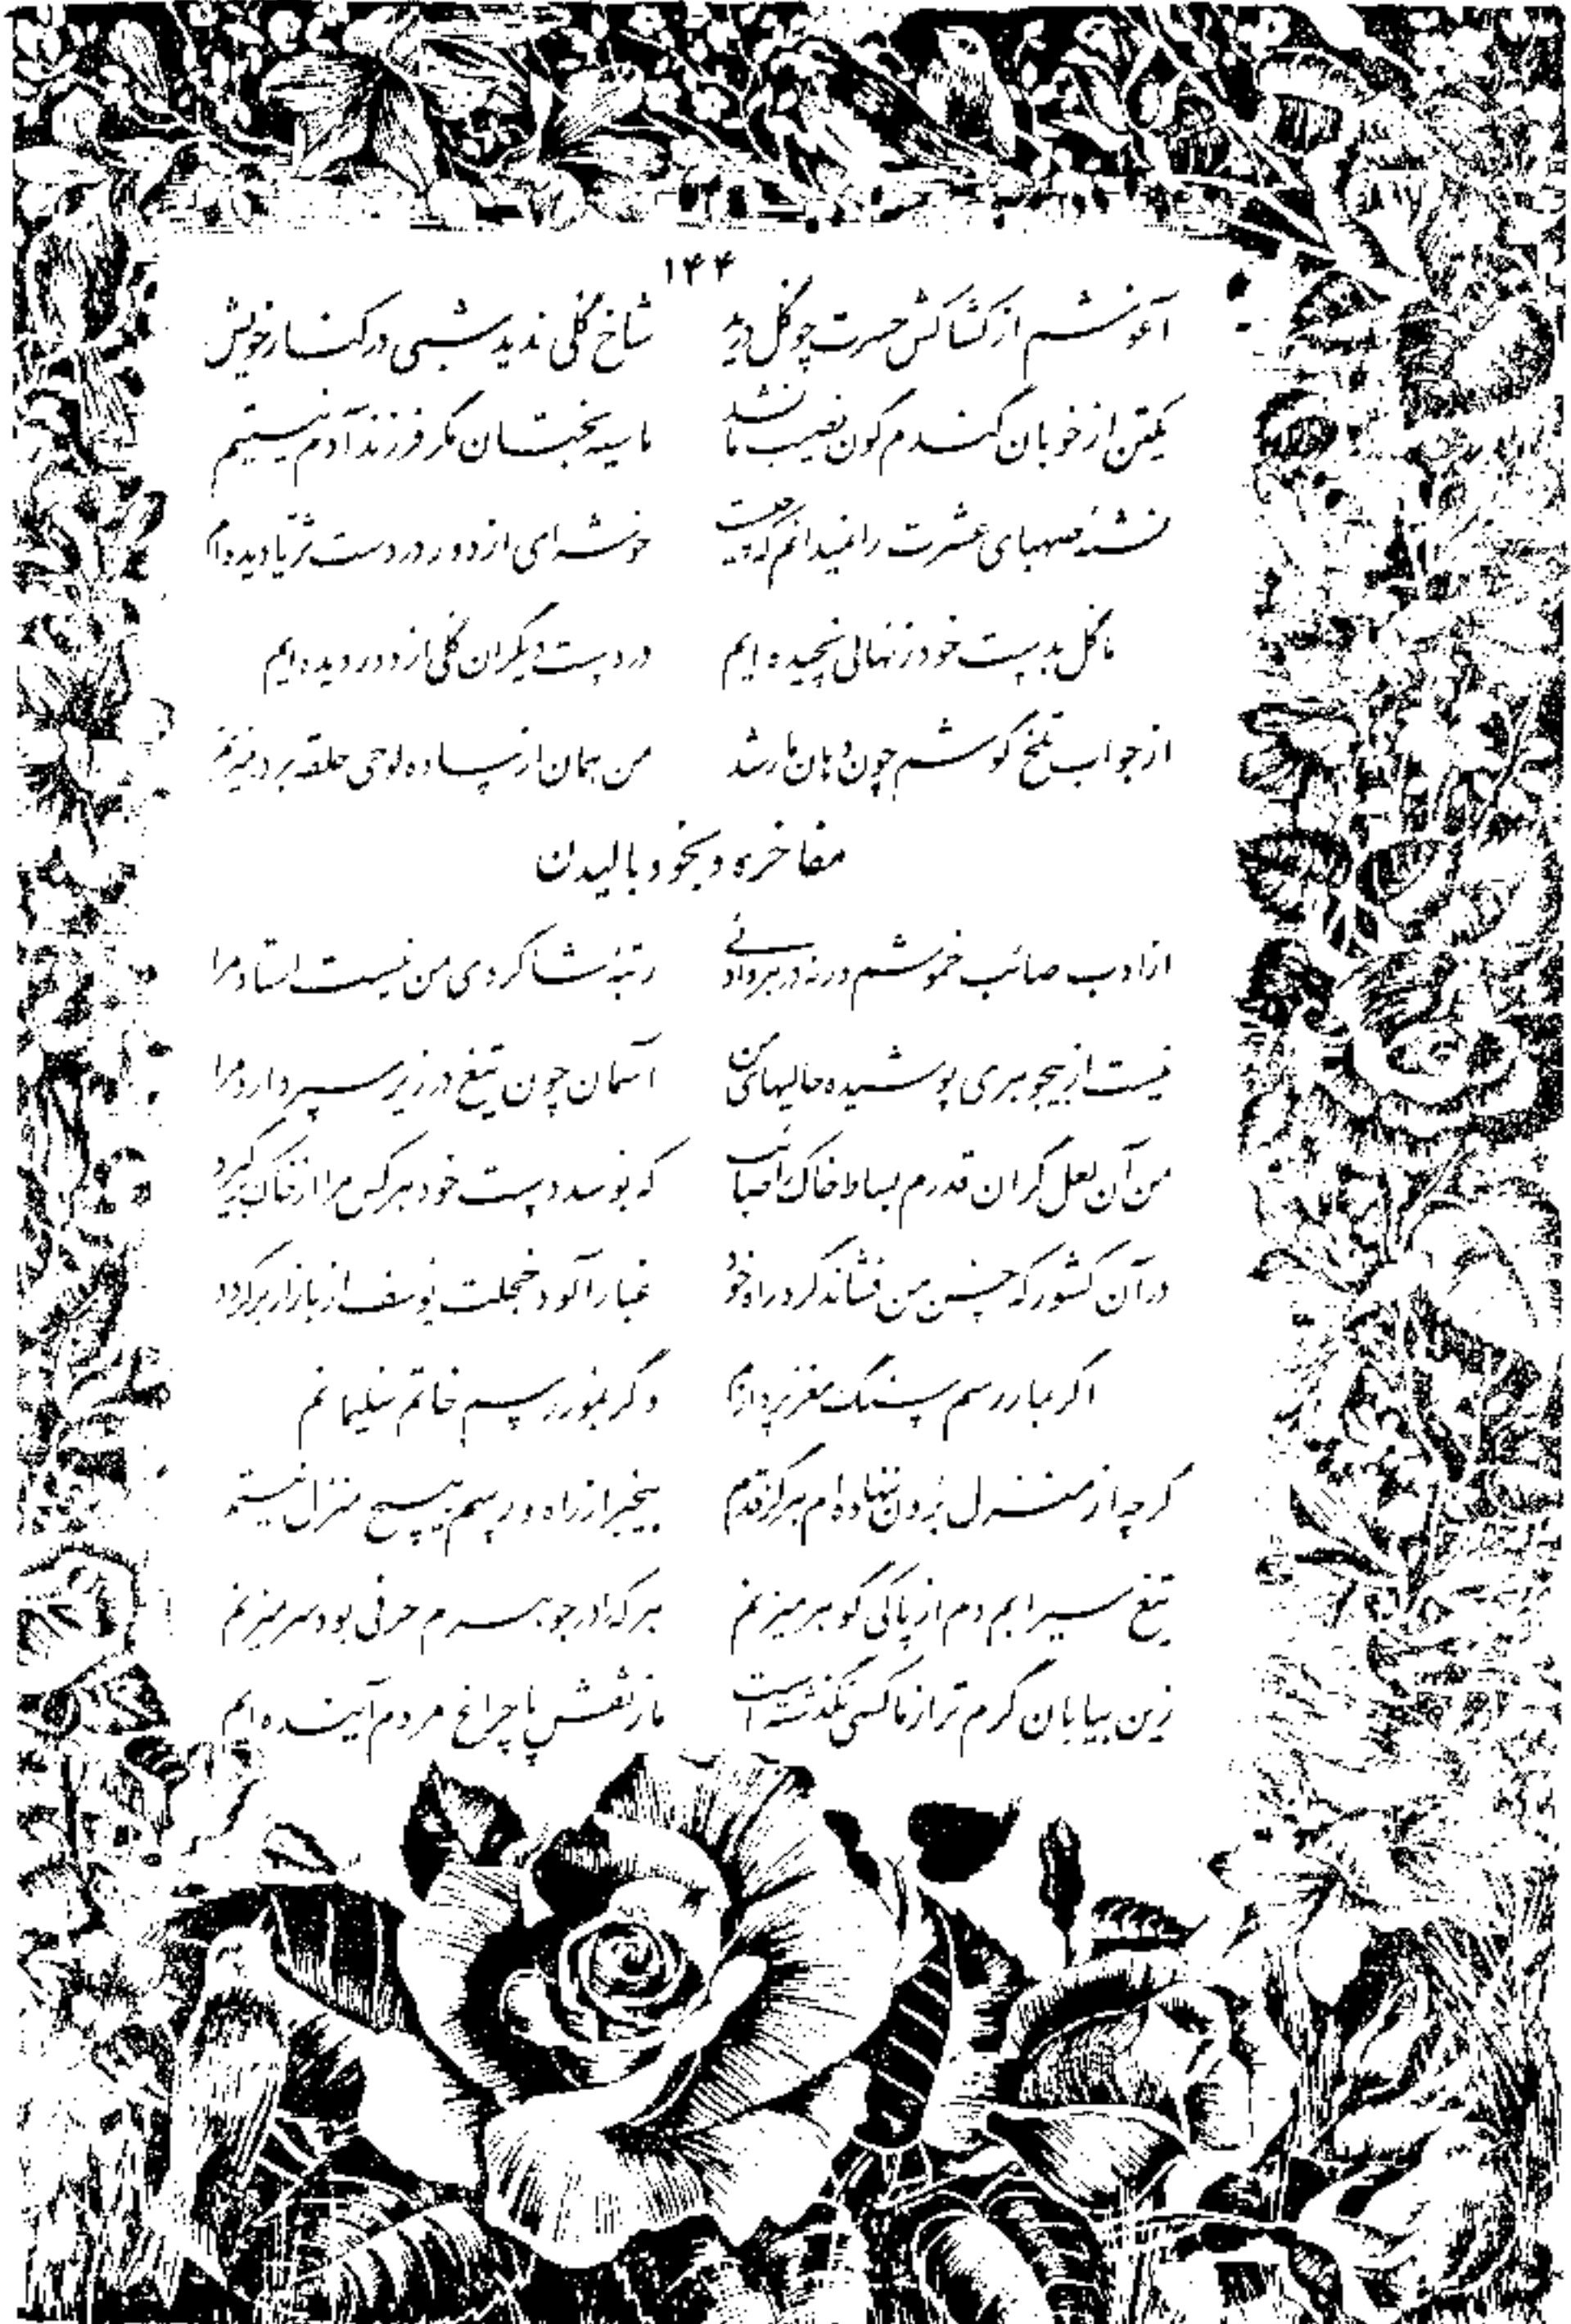 ۱۴۴
آغوشم از کشاکش حسرت چو گل درید شاخ گلی ندید شبی در کنار خویش
یکتن از خوبان گندم گون نصیب ما نشد ما سیه بختان مگر فرزند آدم نیستیم
نشئه صهبای عشرت را نمیدانم که چیست خوشه‌ای از دور در دست ثریا دیده‌ام
ما گل بدست خود ز نهالی نچیده ایم در دست دیگران گلی از دور دیده ایم
از جواب تلخ گوشم چون دهان مار شد من همان از ساده لوحی حلقه بر در میزنم
مفاخره و بخود بالیدن
از ادب صائب خموشم ورنه در هر وادئی رتبه شاگردی من نیست استاد مرا
نیست از بیجوهری پوشیده حالیهای من آسمان چون تیغ در زیر سپر دارد مرا
من آن لعل گران قدرم بساط خاک را صائب که بوسد دست خود هر کس مرا از خاک برگیرد
در آن کشور که جنس من فشاند گرد راه خود غبارآلود خجلت یوسف از بازار برگردد
اگر بمار رسم سنگ مغز پردازم وگر بمور رسم خاتم سلیمانم
گرچه از منزل برون ننهاده‌ام هرگز قدم بیخبر از راه و رسم هیچ منزل نیستم
تیغ سیرابم دم از پاکی گوهر میزنم هر که را در جوهرم حرفی بود سر میزنم
زین بیابان گرم تر از ما کسی نگذشته است ما ز نقش پا چراغ مردم آینده ایم